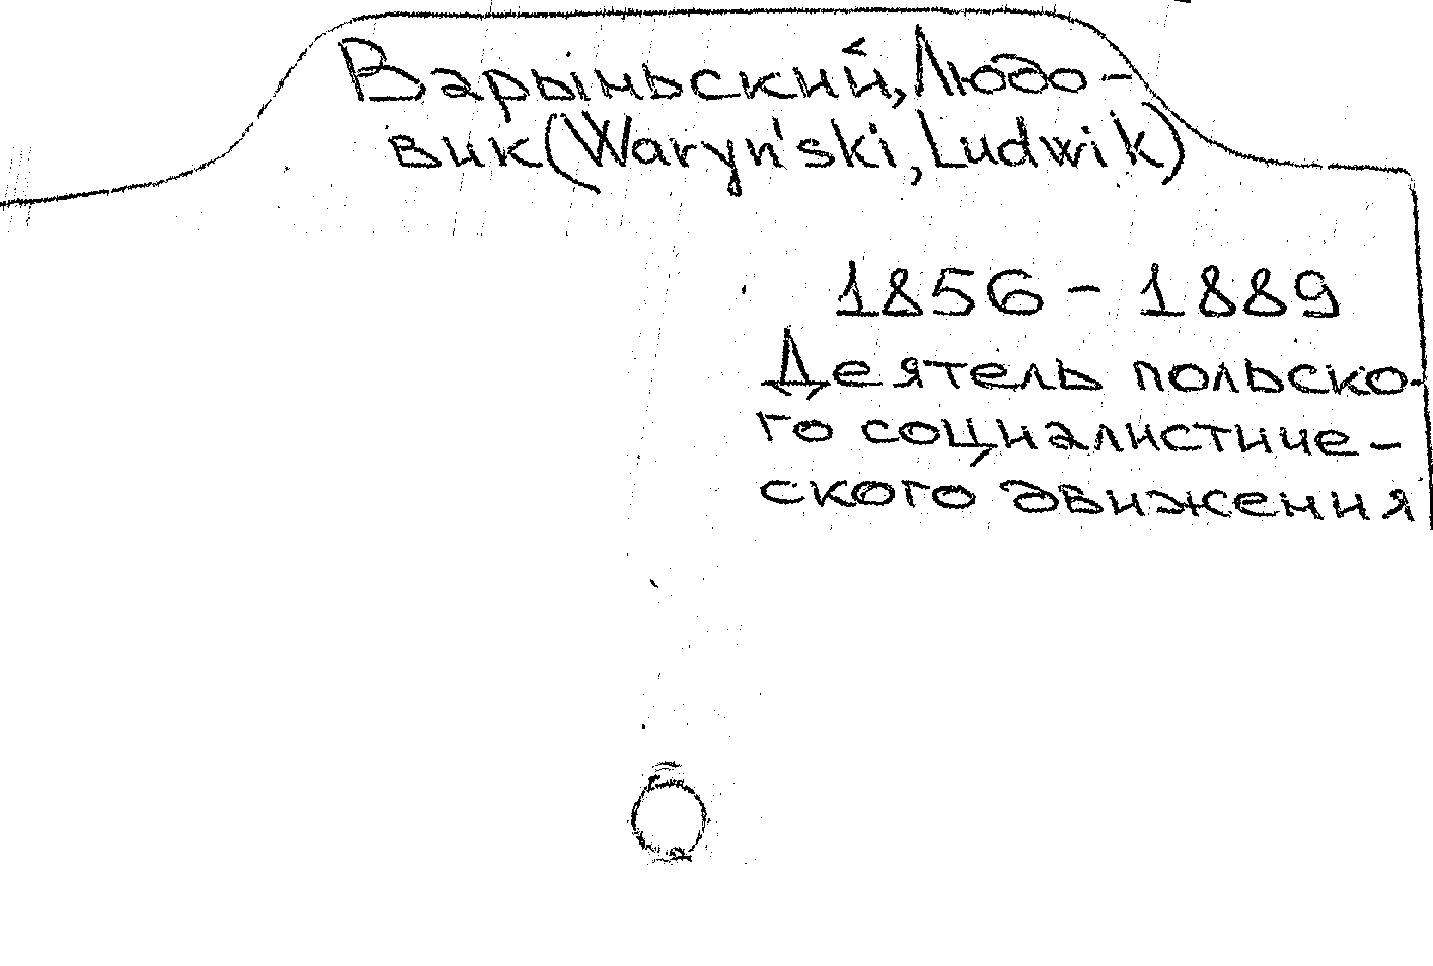 Варыньский, Людо-
вик (Waryński, Ludwik)
1856 - 1889
Деятель польско-
го социалистиче-
ского движения